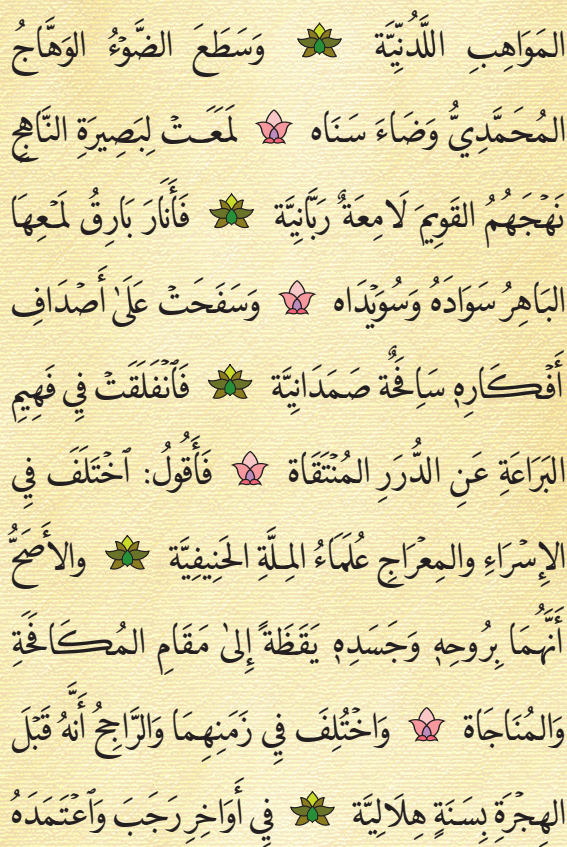 المَوَاهِبِ اللَّدُنِّيَّة وَسَطَعَ الضَّوْءُ الوَهَّاجُ
المُحَمَّدِيُّ وَضَاءَ سَنَاه لَمَعَتْ لِبَصِيرَةِ النَّاهِجِ
نَهْجَهُمُ القَوِيمَ لَامِعَةٌ رَبَّانِيَّة فَأَنَارَ بَارِقُ لَمْعِهَا
البَاهِرُ سَوَادَهُ وَسُوَيْدَاه وَسَفَحَتْ عَلَىٰ أَصْدَافِ
أَفْكَارِهِ سَافِحَةٌ صَمَدَانِيَّة فَٱنْفَلَقَتْ فِي فَهِيمِ
البَرَاعَةِ عَنِ الدُّرَرِ المُنْتَقَاة فَأَقُولُ: ٱخْتَلَفَ فِي
الإِسْرَاءِ والمِعْرَاجِ عُلَمَاءُ المِلَّةِ الحَنِيفِيَّة والأَصَحُّ
أَنَّهُمَا بِرُوحِهِ وَجَسَدِهِ يَقَظَةً إِلىٰ مَقَامِ المُكَافَحَةِ
وَالمُنَاجَاة وَاخْتُلِفَ فِي زَمَنِهِمَا وَالرَّاجِحُ أَنَّهُ قَبْلَ
الهِجْرَةِ بِسَنَةٍ هِلَالِيَّة فِي أَوَاخِرِ رَجَبَ وَٱعْتَمَدَهُ